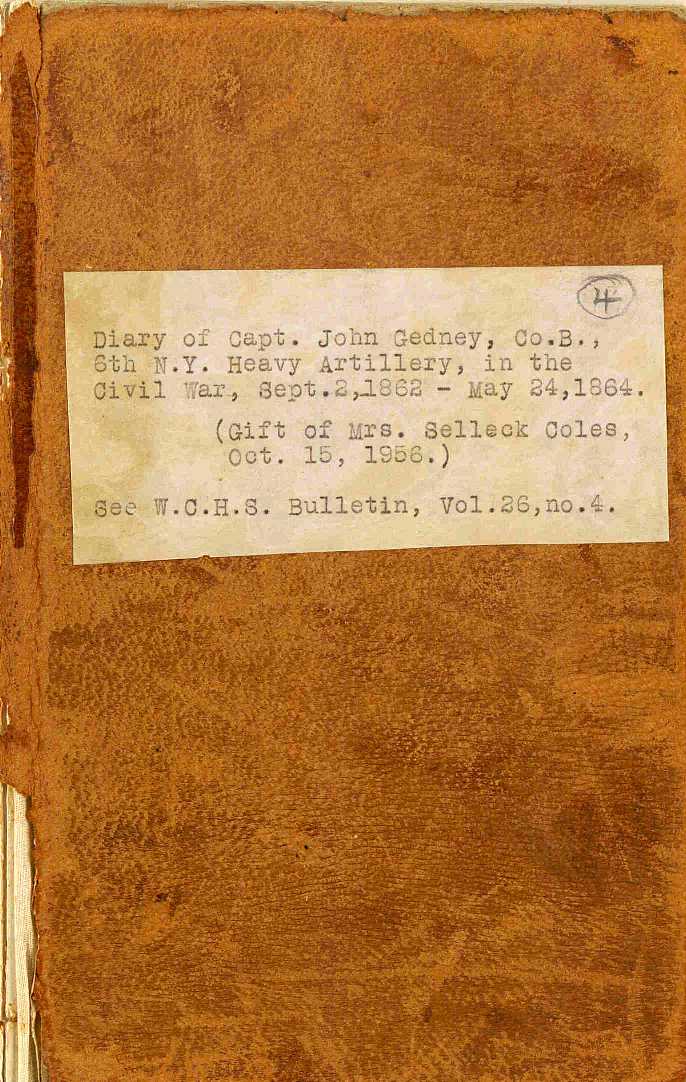 4
Diary of Capt. John Gedney, Co.B.,
6th N.Y. Heavy Artillery, in the
Civil War, Sept.2,1862 - May 24,1864.
(Gift of Mrs. Selleck Coles,
Oct. 15, 1956.)
See W.C.H.S. Bulletin, Vol.26,no.4.